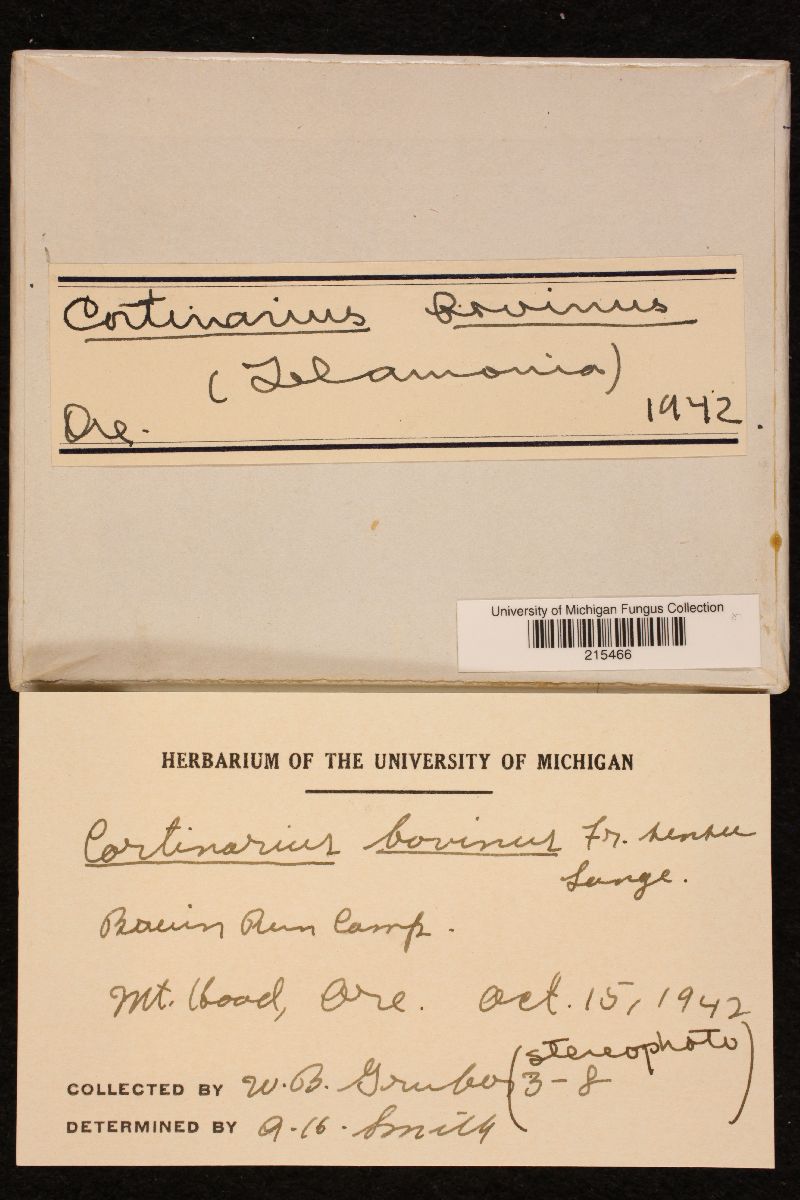 Cortinarius bovinus
(Telamonia)
Ore. 1942
University of Michigan Fungus Collection
215466
HERBARIUM OF THE UNIVERSITY OF MICHIGAN
Cortinarius bovinus Fr. sensu
Lange.
Run Camp.
Mt. Hood, Ore. Oct. 15, 1942
(stereophoto)
COLLECTED BY W.B. Gruber 3-8
DETERMINED BY A.H. Smith